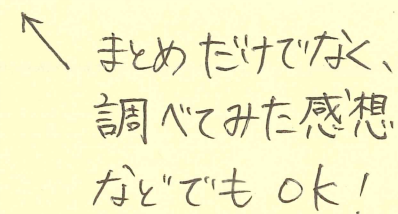 まとめだけでなく、
調べてみた感想
などでもOK!